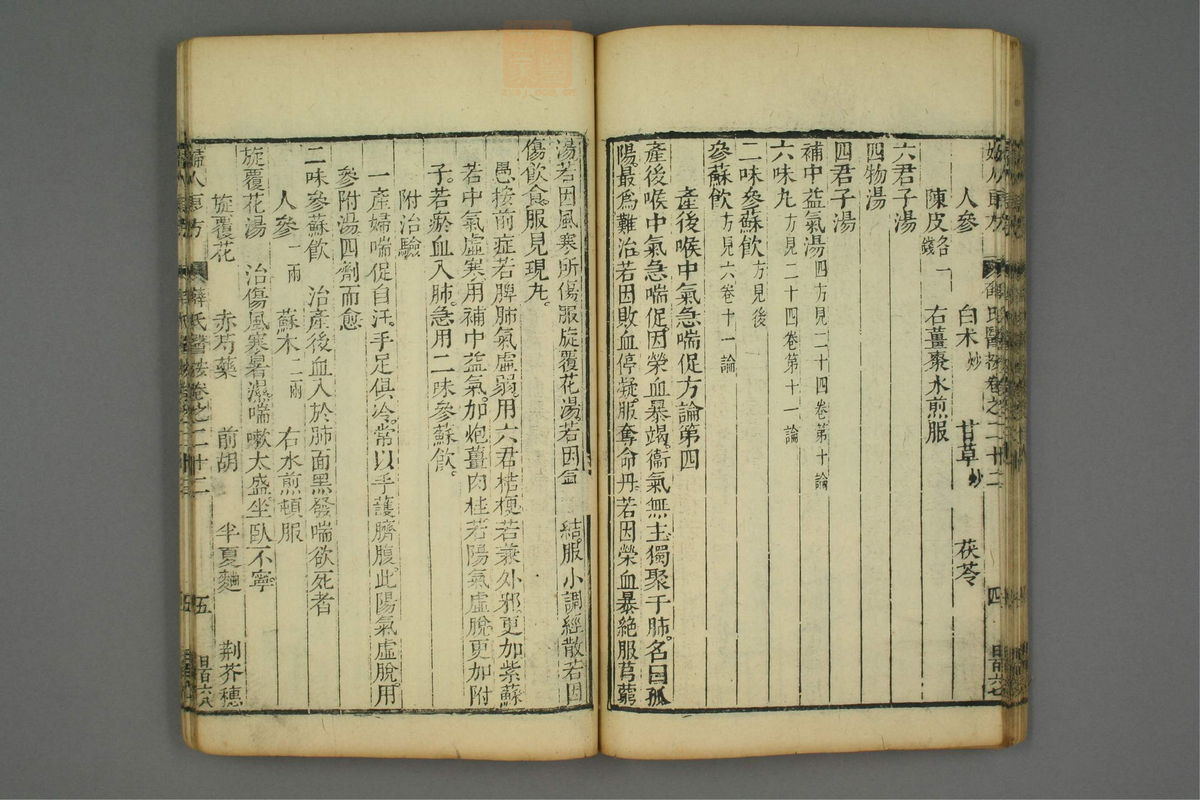 人參 白朮炒 甘草炒 茯苓
陳皮各一錢 右薑棗水煎服
六君子湯
四物湯
四君子湯
補中益氣湯四方見二十四卷第十論
六味丸方見二十四卷第十一論
二味參蘇飲方見後
參蘇飲方見六卷十一論
產後喉中氣急喘促方論第四
產後喉中氣急喘促因榮血暴竭。衞氣無主獨聚于肺。名曰孤
陽。最爲難治。若因敗血停凝服奪命丹。若因榮血暴絕服芎藭
湯若因風寒所傷服旋覆花湯。若因 結。服小調經散若因
傷飲食。服見現丸。
愚按前症若脾肺氣虛弱。用六君桔梗。若兼外邪更加紫蘇
若中氣虛寒。用補中益氣。加炮薑肉桂若陽氣虛脫更加附
子。若瘀血入肺。急用二味參蘇飲。
附治驗
一產婦喘促自汗。手足俱冷。常以手護臍腹。此陽氣虛脫。用
參附湯四劑而愈
二味參蘇飲 治產後血入於肺面黑發喘欲死者
人參一兩 蘇木二兩 右水煎頓服
旋覆花湯 治傷風寒暑濕喘嗽太盛坐臥不寧。
旋覆花 赤芍藥 前胡 半夏麯 荆芥穗
薛氏醫按卷之二十二 五